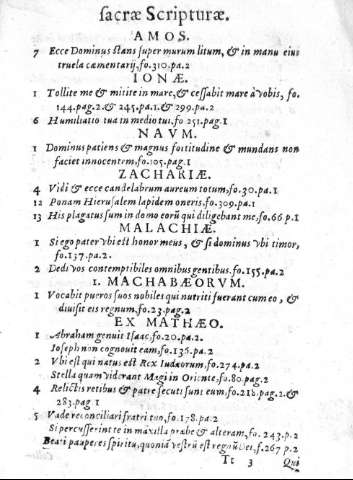 sacræ Scripturæ.
AMOS.
7 Ecce Dominus stans super murum litum, & in manu eius
truela cæmentarij, fo.310.pa.2
IONÆ.
1 Tollite me & mitite in mare, & cessabit mare à vobis, fo.
144.pag.2.& 245.pa.1.& 299.pa.2
6 Humiliatio tua in medio tui, fo 251.pag.1
NAVM.
1 Dominus patiens & magnus fortitudine & mundans non
faciet innocentem, fo.105.pag.1
ZACHARIÆ.
4 Vidi & ecce candelabrum aureum totum, fo.30.pa.1
12 Ponam Hierusalem lapidem oneris, fo.309.pa.1
13 His plagatus sum in domo eorũ qui diligebant me, fo.66 p.1
MALACHIÆ.
1 Si ego pater vbi est honor meus, & si dominus vbi timor,
fo.137.pa.2.
2 Dedi vos contemptibiles omnibus gentibus. fo.155.pa.2
1. MACHABÆORVM.
1 Vocabit pueros suos nobiles qui nutriti fuerant cum eo, &
diuisit eis regnum, fo.23.pag.2
EX MATHÆO.
1 Abraham genuit Isaac, fo.20.pa.2.
Ioseph non cognouit eam, fo.136.pa.2
2 Vbi est qui natus est Rex Iudæorum. fo.274.pa.2
Stella quam viderant Magi in Oriente, fo.80.pag.2
4 Relictis retibus & patre secuti sunt eum, fo.218.pag.2.&
283.pag.1
5 Vade reconciliari fratri tuo, fo.178.pa.2
Si percusserint te in maxilla præbe & alteram, fo.243.p.2
Beati pauperes spiritu, quoniã vestrũ est regnũ f.267 p.2
Tt 3 Qui